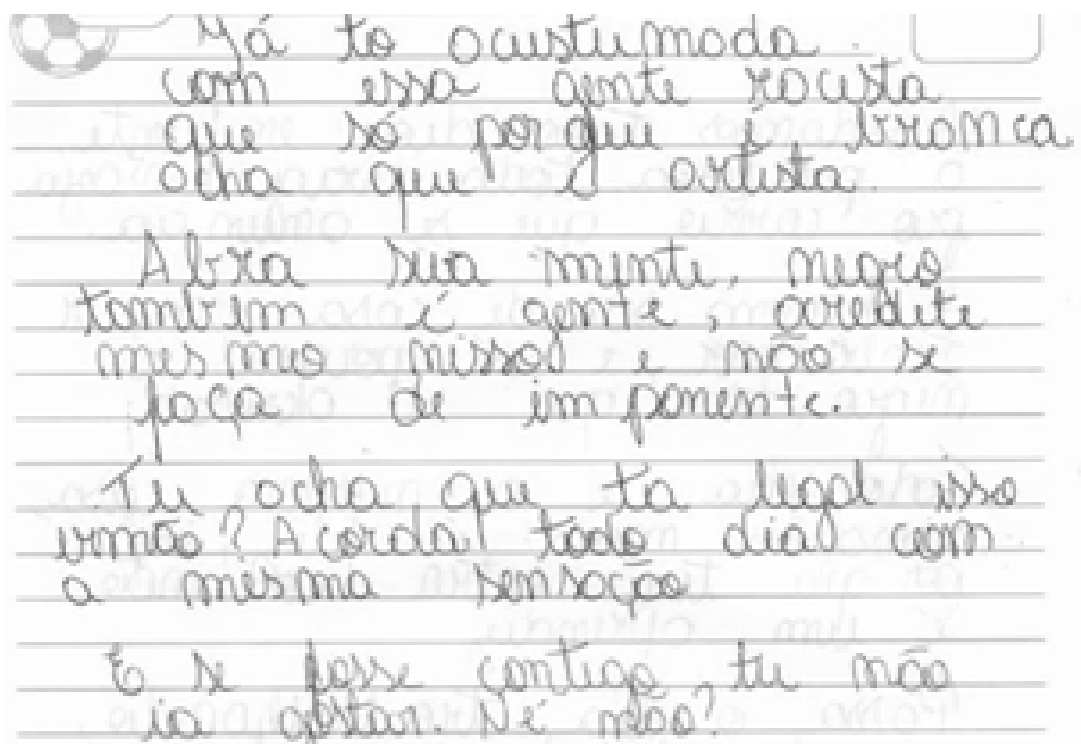 Já to acustumada
com essa gente racista
que só porque é branca
acha que é artista.
Abra sua mente, negro
também é gente, acredite
mesmo nisso e não se
faça de imponente.
Tu acha que ta legal isso
irmão? Acorda todo dia com
a mesma sensação
E se fosse contigo, tu não
ia gostar. Né não?